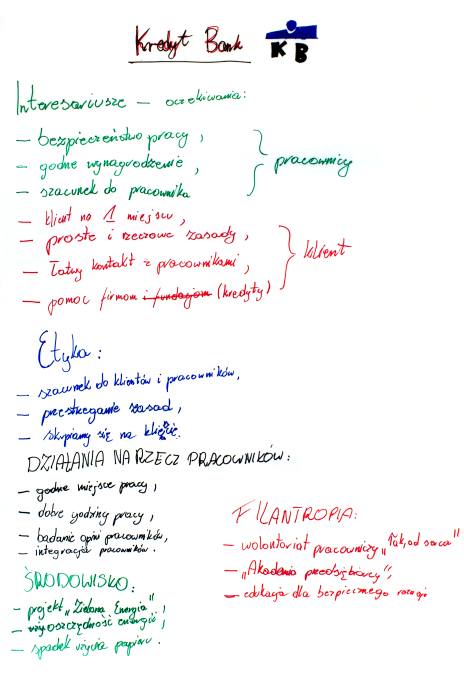 Kredyt Bank
KB
Interesariusze – oczekiwania:
– bezpieczeństwo pracy,
– godne wynagrodzenie,
– szacunek do pracownika
pracownicy
– klient na 1 miejscu,
– proste i rzeczowe zasady,
– łatwy kontakt z pracownikami,
– pomoc firmom i fundacjom (kredyty)
klient
Etyka:
– szacunek do klientów i pracowników,
– przestrzeganie zasad,
– skupiamy się na kliencie.
DZIAŁANIA NA RZECZ PRACOWNIKÓW:
– godne miejsce pracy,
– dobre godziny pracy,
– badanie opinii pracowników,
– integracja pracowników.
FILANTROPIA:
– wolontariat pracowniczy „Tak, od serca”
– „Akademia przedsiębiorcy”,
– edukacja dla bezpiecznego
ŚRODOWISKO:
– projekt „Zielona Energia”,
– energii,
– spadek użycia papieru.